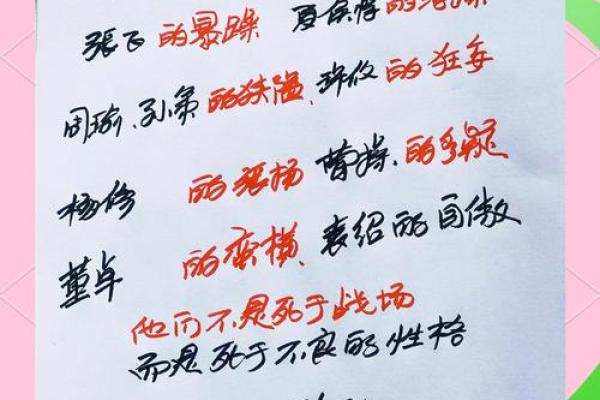 张飞的暴躁 夏侯惇的
周瑜、孙策的狭隘、许攸的狂妄
杨修 的张扬 曹操、的多疑
董卓 的蛮横、袁绍的自傲
他们不是死于战场
而是死于不良的性格